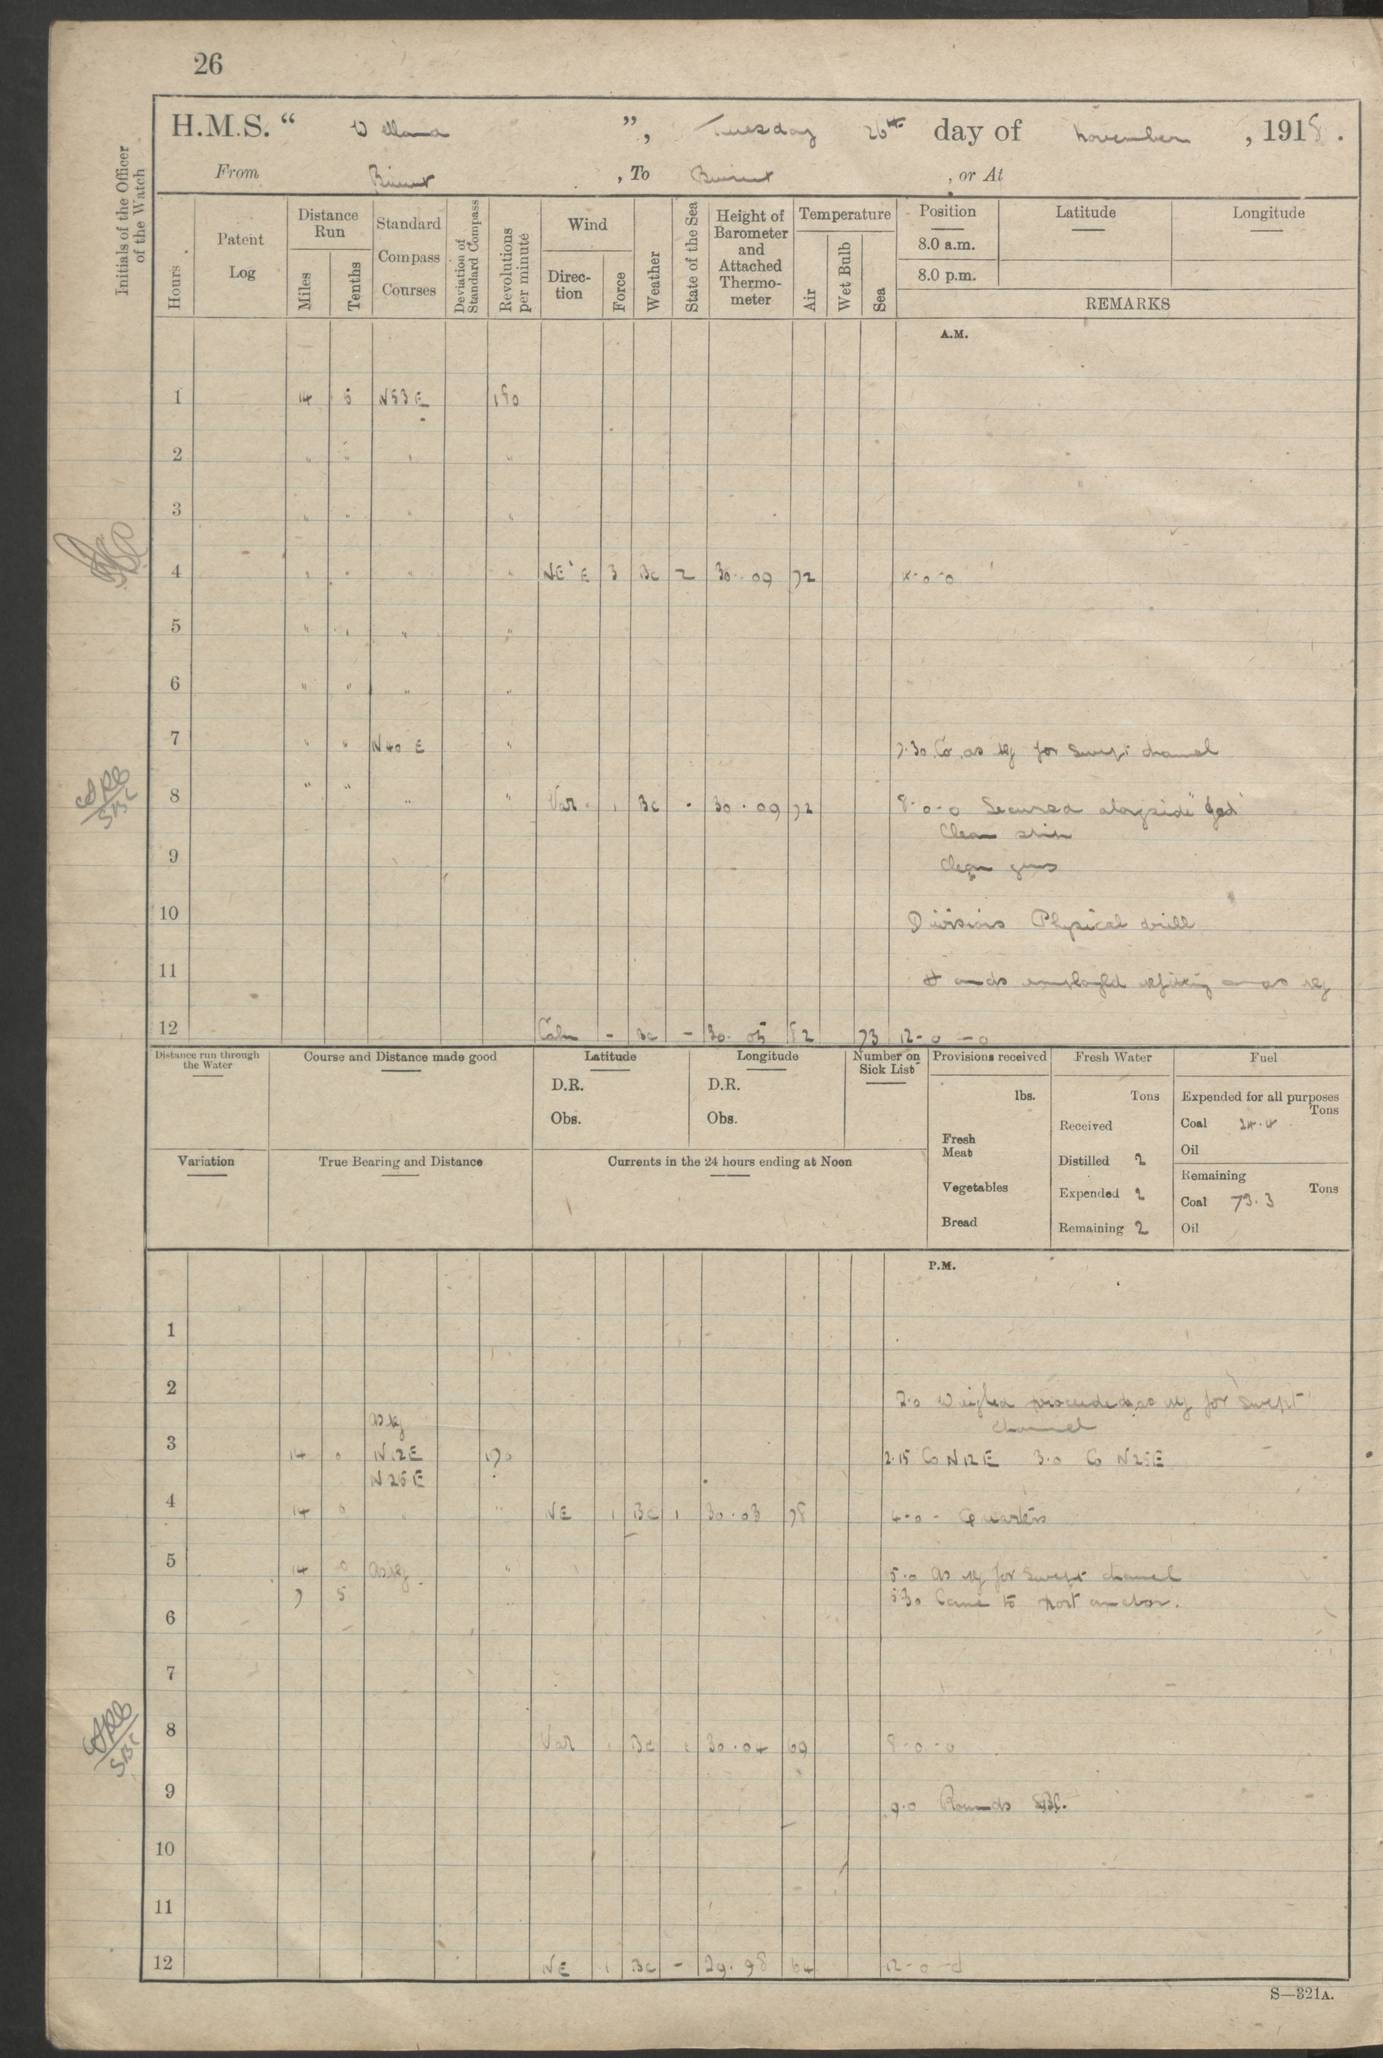 26
H.M.S. " Welland ", Tuesday 26th day of November, 1918.
From Beirut, To Beirut, or At
Initials of the Officer of the Watch
Hours
Patent Log
Distance Run
Miles
Tenths
Standard Compass Courses
Deviation of Standard Compass
Revolutions per minute
Wind
Direction
Force
Weather
State of the Sea
Height of Barometer and Attached Thermometer
Temperature
Air
Wet Bulb
Sea
Position
8.0 a.m.
8.0 p.m.
Latitude
Longitude
REMARKS
A.M.
1 14 5 N53E 180
2 " " " "
3 " " " "
4 " " " " NE'E 3 Bc 2 30.09 72 4-0-0
5 " " " "
6 " " " "
7 " " N40E " 7.30 Co as req for swept channel
8 " " " " Var. 1 Bc - 30.09 72 8-0-0 Secured alongside "Jed"
Clean ship
9 Clean guns
10 Divisions Physical drill
11 Hands employed refitting and as req
12 Calm - Bc - 30.05 82 73 12-0-0
Distance run through the Water
Course and Distance made good
Latitude
D.R.
Obs.
Longitude
D.R.
Obs.
Number on Sick List
Provisions received
lbs.
Fresh Meat
Vegetables
Bread
Fresh Water
Tons
Received
Distilled 2
Expended 2
Remaining 2
Fuel
Expended for all purposes
Tons
Coal 24.4
Oil
Remaining
Tons
Coal 73.3
Oil
Variation
True Bearing and Distance
Currents in the 24 hours ending at Noon
P.M.
1
2 2.0 Weighed proceeded as req for swept
channel
as req
3 14 0 N12E 170 2.15 Co N12E 3.0 Co N25E
N25E
4 14 0 " NE 1 Bc 1 30.03 78 4-0- Quarters
5 14 0 as req " 5.0 As req for swept channel
7 5 5.30 Came to port anchor.
6
7
8 Var 1 Bc 1 30.04 69 8-0-0
9 9.0 Rounds SBC.
10
11
12 NE 1 Bc - 29.98 64 12-0-0
S—321A.